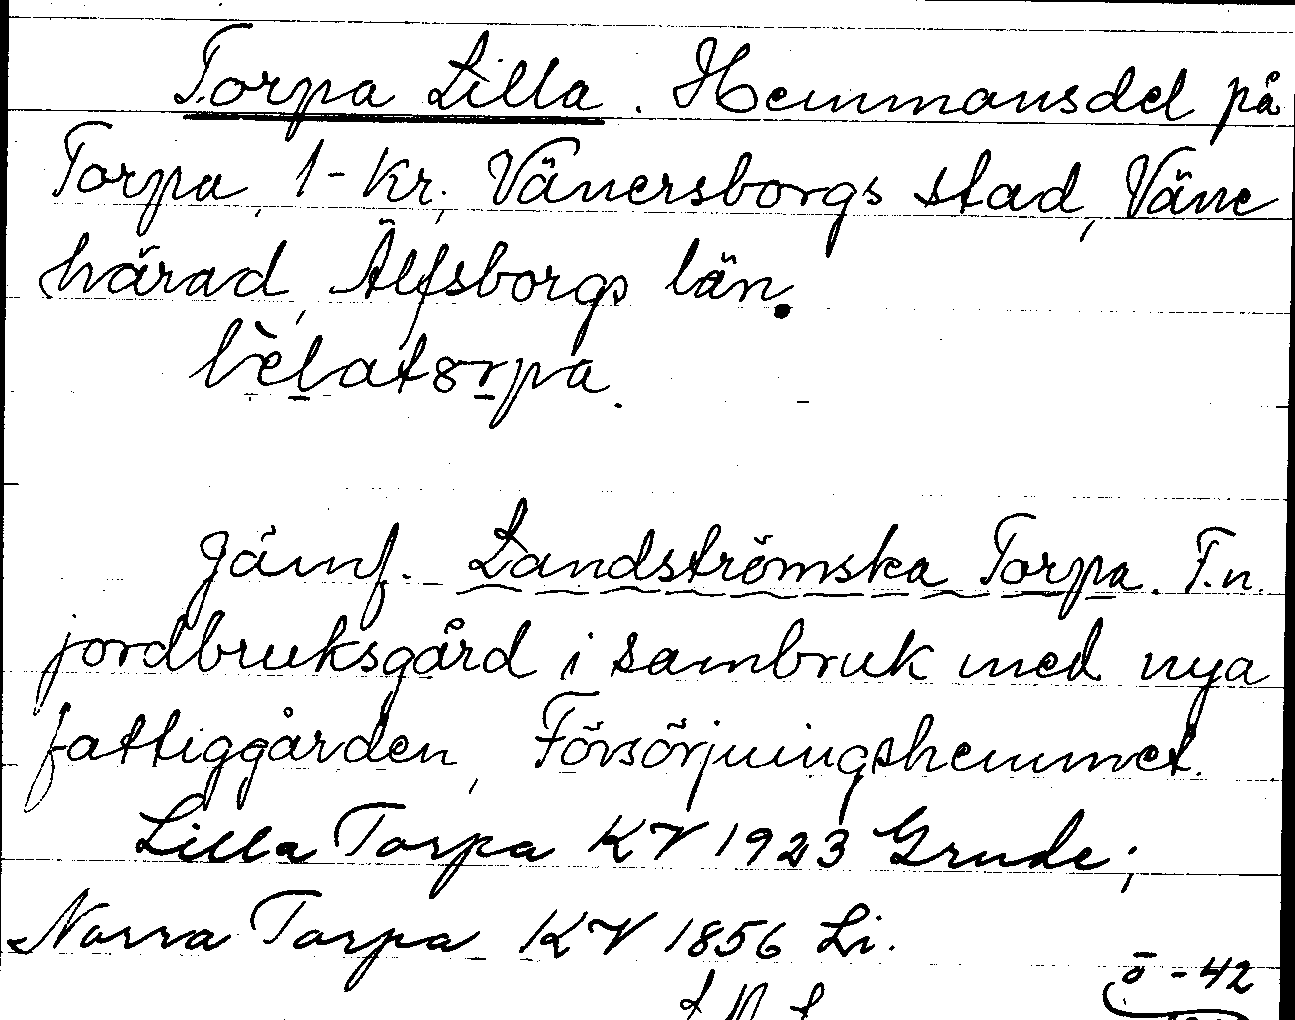 Torpa Lilla. Hemmansdel på
Torpa, 1-kr, Vänersborgs stad, Väne
härad, Älfsborgs län.
lèlatorpa.
Jämf. Landströmska Torpa. F.n.
jordbruksgård i sambruk med nya
fattiggården, Försörjningshemmet.
Lilla Torpa KV 1923 Grude;
Norra Torpa KV 1856 Li.
ö - 42